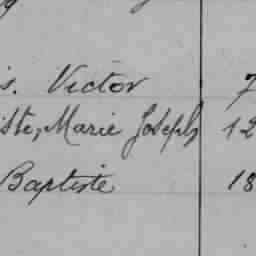 s. Victor 7
iste, Marie Joseph 12
Baptiste 18